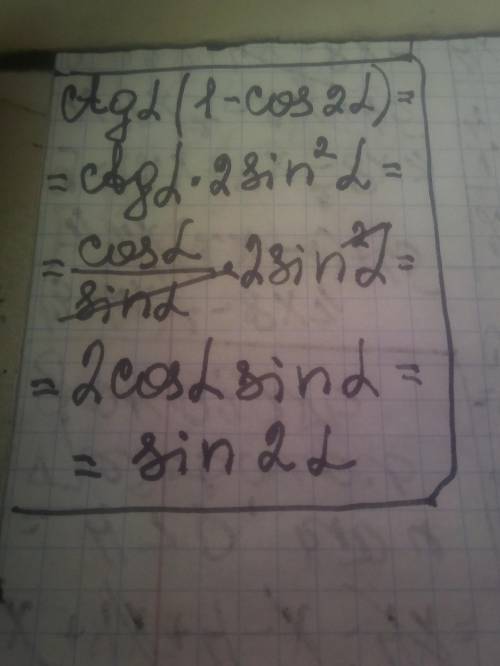 ctgα(1-cos2α)=
=ctgα·2sin²α=
=cosα/sinα·2sin²α=
=2cosαsinα=
=sin2α